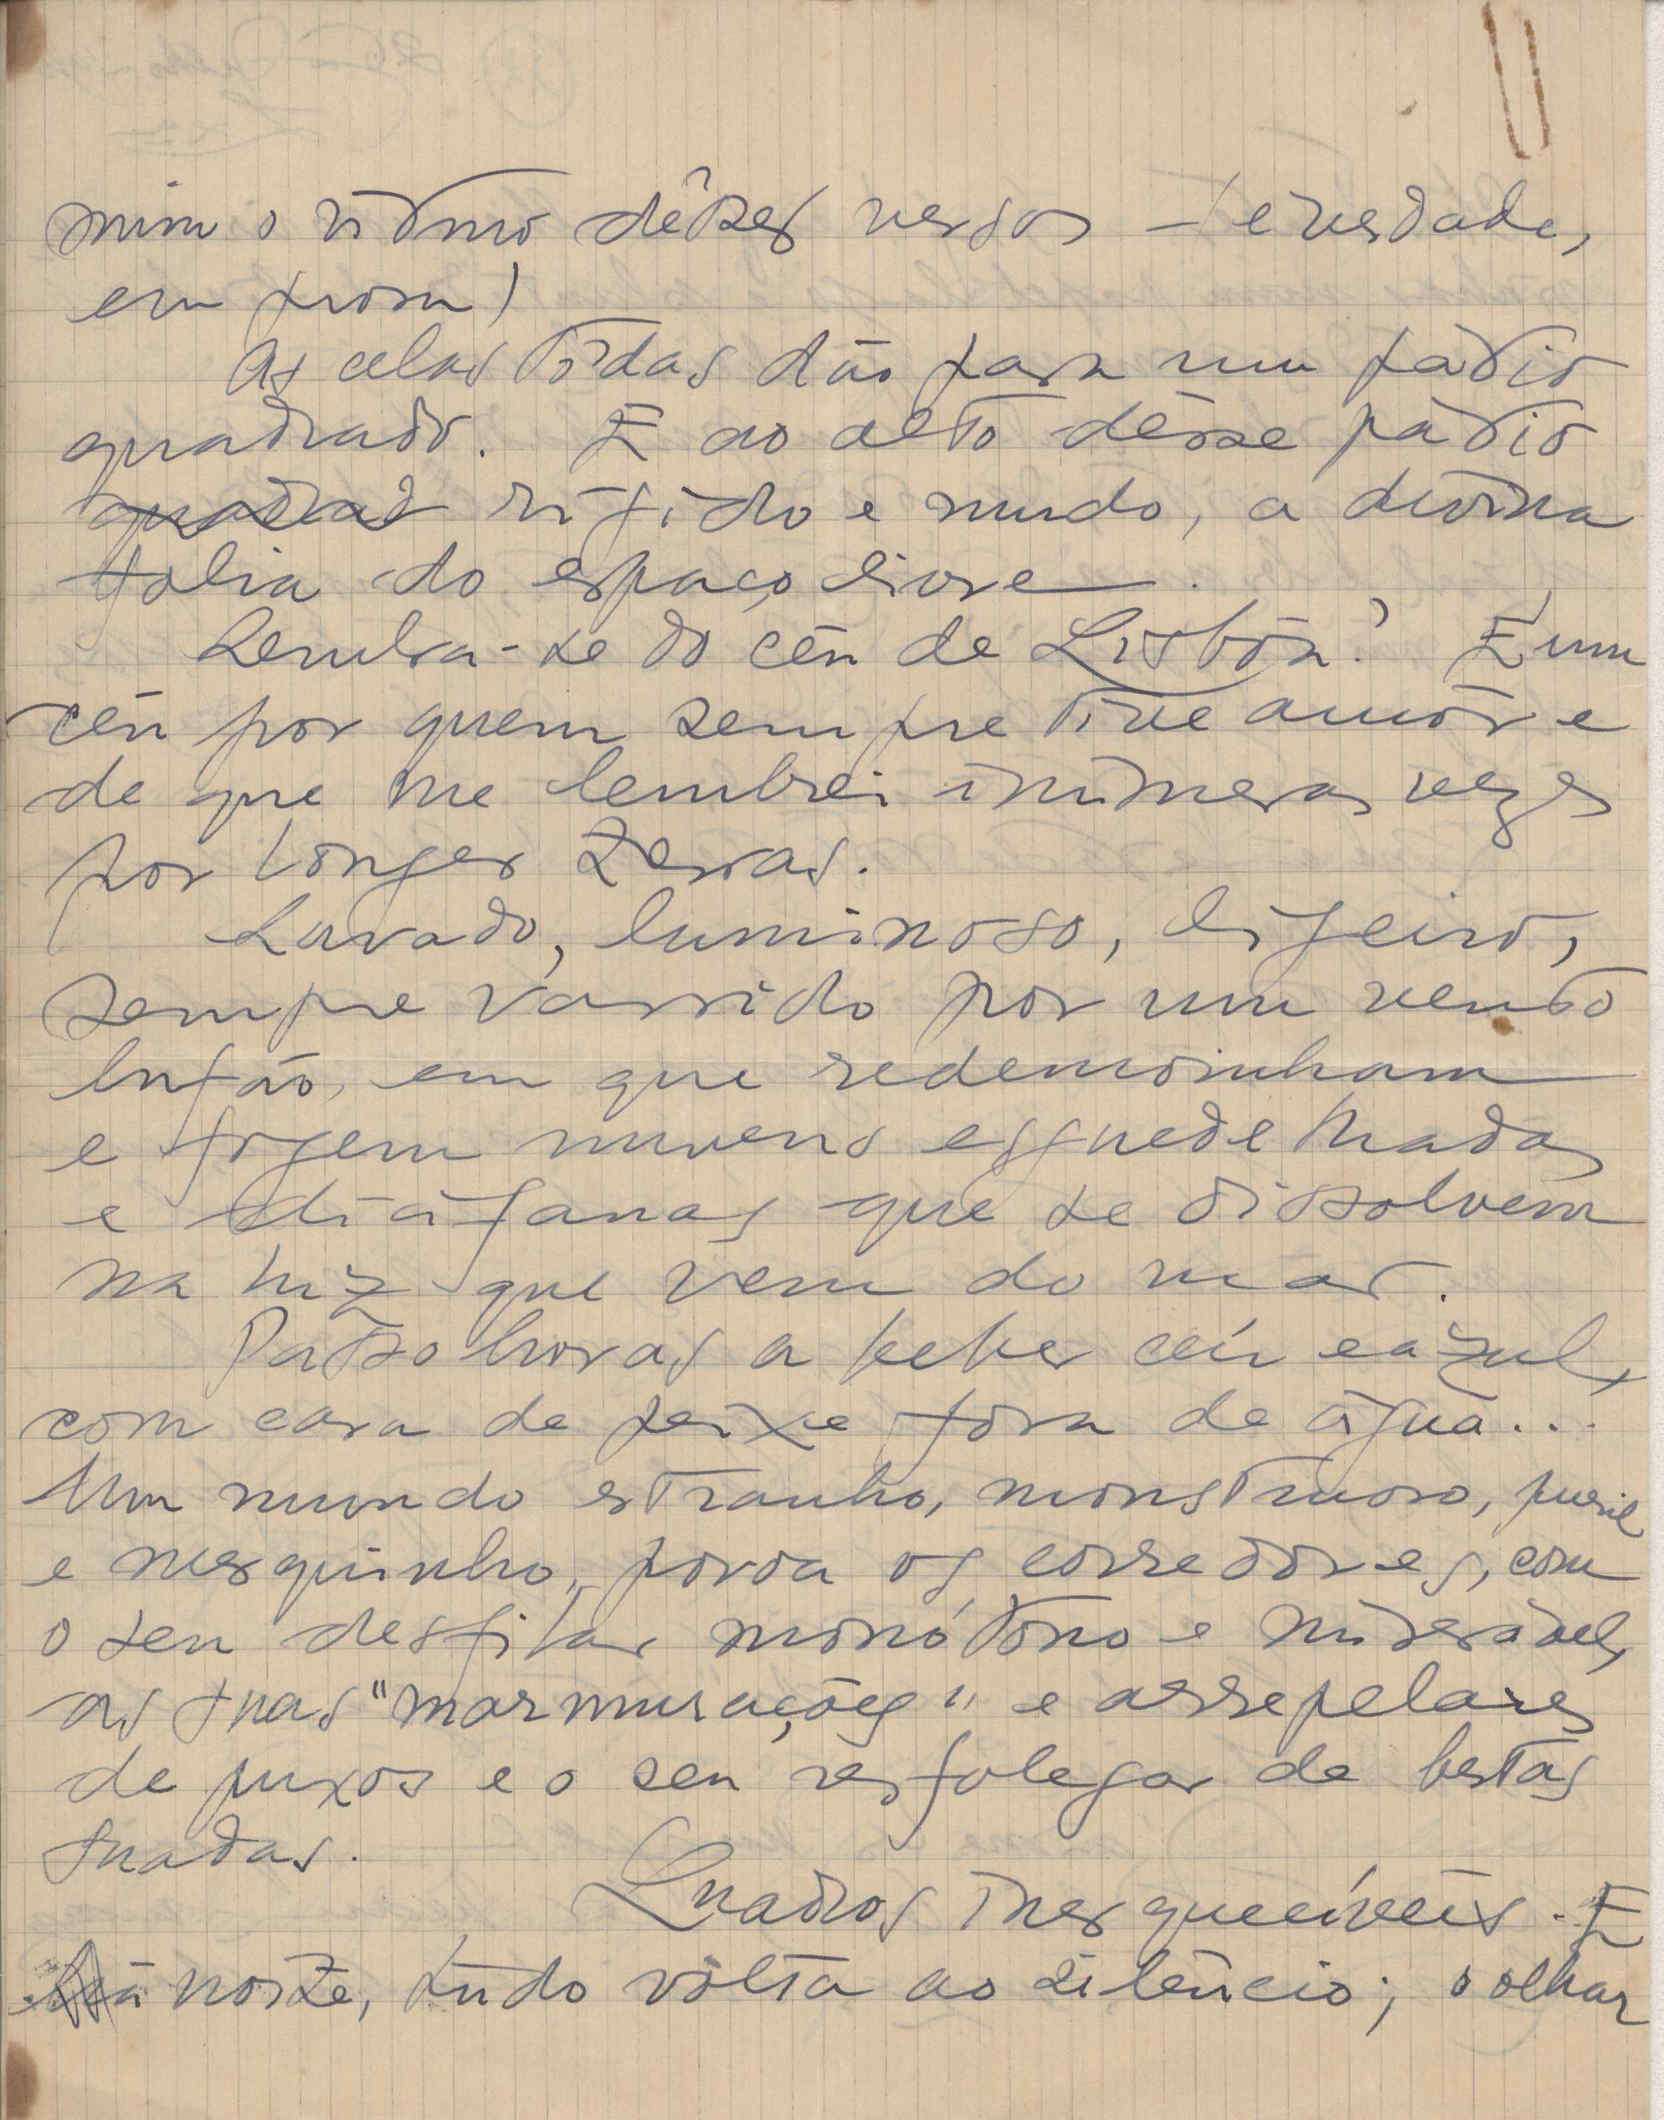 mim o ritmo dêsses versos – é verdade,
em prosa!
As celas tôdas dão para um pátio
quadrado. E ao alto dêsse pátio
rígido e mudo, a divina
folia do espaço livre.
Lembra-se do céu de Lisbôa? É um
céu por quem sempre tive amôr e
de que me lembrei inúmeras vezes
por longes terras.
Lavado, luminoso, ligeiro,
sempre varrido por um vento
lufão, em que redemoinham
e fogem nuvens esguedelhadas
e diáfanas que se dissolvem
na luz que vem do mar.
Passo horas a beber céu e azul,
com cara de peixe fora de água...
Um mundo estranho, monstruoso, pueril
e mesquinho, povoa os corredores, com
o seu desfilar monótono e miserável,
as suas "marmurações" e arrepelares
de puxos e o seu resfolegar de bestas
suadas.
Quadros inesquecíveis. E
à noite, tudo volta ao silêncio; o olhar